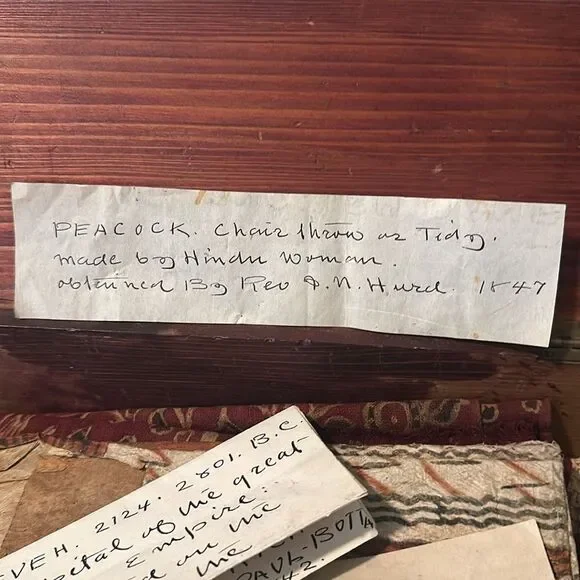 PEACOCK. Chair throw or Tidy.
made by Hindu woman.
obtained By Rev I. N. Hurd. 1847
VEH. 2124. 2801. B.C.
pital of the great
Empire:
d on the
the
PAUL-BOTTA
42.